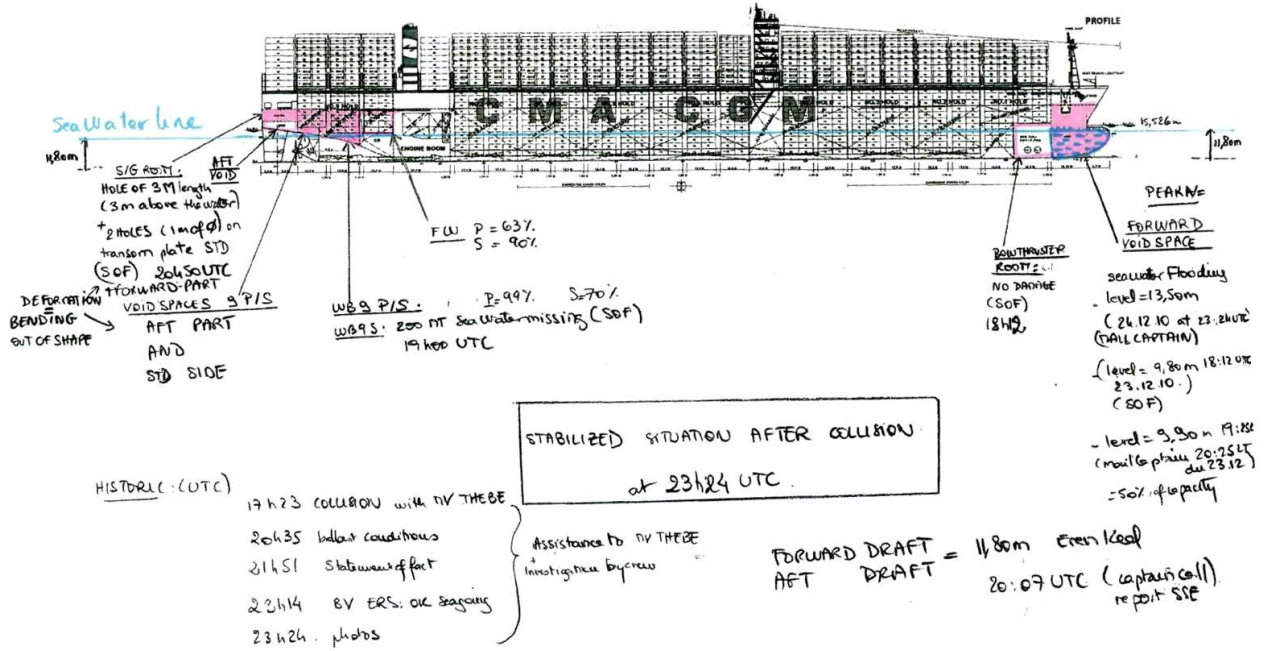 PROFILE
CMA CGM
Sea Water line
11,80m
15,526m
11,80m
ENGINE ROOM
S/G ROOM:
HOLE OF 3M length
(3m above the water)
+ 2 HOLES (1m of φ) on
transom plate STD
(SOF) 20h50UTC
AFT
VOID
+FORWARD-PART
VOID SPACES 9 P/S
DEFORMATION
=
BENDING
OUT OF SHAPE
AFT PART
AND
STD SIDE
FW P = 63%
S = 90%
WB 9 P/S: P=99% S=70%
WB9S: 200 MT sea water missing (SOF)
19h00 UTC
BOWTHRUSTER
ROOM:
NO DAMAGE
(SOF)
18h12
PEAKAV=
FORWARD
VOID SPACE
seawater Flooding
- level=13,50m
(24.12.10 at 23:24UTC)
(MAIL CAPTAIN)
- (level = 9,80m 18:12 UTC
23.12.10.)
(SOF)
- level = 9,90m
(mail Captain 20:25LT
du 23.12)
=50% of capacity
STABILIZED SITUATION AFTER COLLISION
at 23h24 UTC.
HISTORIC:(UTC)
17h23 COLLISION with MV THEBE
20h35 ballast conditions
21h51 Statement of fact
23h14 BV ERS: OK Seagoing
23h24. photos
Assistance to MV THEBE
+
Investigation by crew
FORWARD DRAFT = 11,80m Even Keel
AFT DRAFT
20:07 UTC (captain call)
report SSE